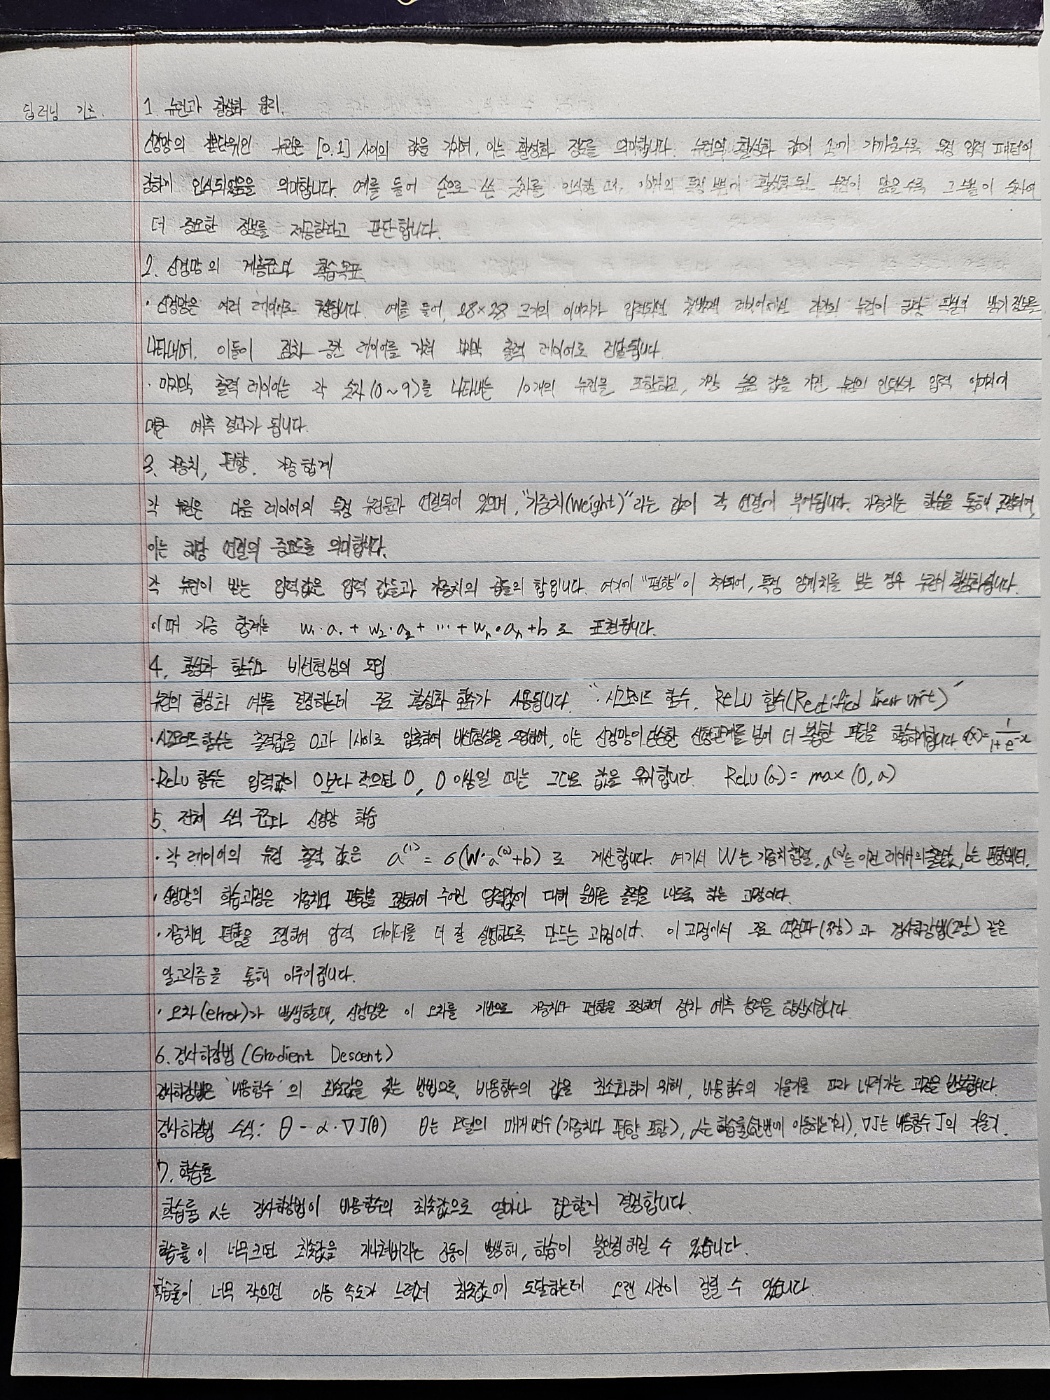 딥러닝 기초.
1. 뉴런과 활성화 원리.
신경망의 기본단위인 뉴런은 [0,1] 사이의 값을 가지며, 이는 활성화 정도를 의미합니다. 뉴런의 활성화 값이 1에 가까울수록 특정 입력 패턴이
강하게 인식되었음을 의미합니다. 예를 들어 손으로 쓴 숫자를 인식할 때, 이미지의 특정 부분이 활성화된 뉴런이 많을수록 그 부분이 숫자에
더 중요한 정보를 제공한다고 판단합니다.
2. 신경망의 계층구조와 학습목표
· 신경망은 여러 레이어로 구성됩니다. 예를 들어, 28×28 크기의 이미지가 입력되면 첫번째 레이어에서 각각의 뉴런이 해당 픽셀의 밝기 정보를
나타내며, 이들이 점차 중간 레이어를 거쳐 마지막 출력 레이어로 전달됩니다.
· 마지막 출력 레이어는 각 숫자(0~9)를 나타내는 10개의 뉴런을 포함하고, 가장 높은 값을 가진 뉴런의 인덱스가 입력 이미지에
대한 예측 결과가 됩니다.
3. 가중치, 편향. 가중합계
각 뉴런은 다음 레이어의 특정 뉴런들과 연결되어 있으며, "가중치(Weight)"라는 값이 각 연결에 부여됩니다. 가중치는 학습을 통해 조정되며,
이는 해당 연결의 중요도를 의미합니다.
각 뉴런이 받는 입력값은 입력 값들과 가중치의 곱들의 합입니다. 여기에 "편향"이 추가되어, 특정 임계치를 넘는 경우 뉴런이 활성화됩니다.
이때 가중 합계는 w₁·a₁ + w₂·a₂ + ··· + wₙ·aₙ + b로 표현됩니다.
4. 활성화 함수와 비선형성의 도입
뉴런의 활성화 여부를 결정하는데 주로 활성화 함수가 사용됩니다. "시그모이드 함수, ReLU 함수(Rectified linear unit)"
· 시그모이드 함수는 출력값을 0과 1사이로 압축하여 비선형성을 도입하며, 이는 신경망이 단순한 선형관계를 넘어 더 복잡한 패턴을 학습하게합니다. σ(x)=1/(1+e^-x)
· ReLU 함수는 입력값이 0보다 작으면 0, 0이상일 때는 그대로 값을 유지합니다. ReLU(a) = max(0,a)
5. 전체 수식 구조와 신경망 학습
· 각 레이어의 뉴런 출력 값은 a⁽¹⁾ = σ(W·a⁽⁰⁾+b)로 계산합니다. 여기서 W는 가중치행렬, a⁽⁰⁾는 이전 레이어의 출력값, b는 편향벡터.
· 신경망의 학습과정은 가중치와 편향을 조정하여 주어진 입력값에 대해 올바른 출력을 내도록 하는 과정이다.
· 가중치와 편향을 조정하여 입력 데이터를 더 잘 설명하도록 만드는 과정이다. 이 과정에서 주로 역전파(3장)과 경사하강법(2장) 같은
알고리즘을 통해 이루어집니다.
· 오차(error)가 발생할때, 신경망은 이 오차를 기반으로 가중치와 편향을 조정하여 점차 예측 능력을 향상시킵니다.
6. 경사하강법 (Gradient Descent)
경사하강법은 '비용함수'의 최솟값을 찾는 방법으로, 비용함수의 값을 최소화하기 위해, 비용함수의 기울기를 따라 내려가는 과정을 반복합니다.
경사하강법 수식: θ - α·∇J(θ) θ는 모델의 매개변수(가중치와 편향 포함), α는 학습률(한번에 이동하는거리), ∇J는 비용함수 J의 기울기.
7. 학습률
학습률 α는 경사하강법이 비용함수의 최솟값으로 얼마나 접근할지 결정합니다.
학습률이 너무크면 최솟값을 지나쳐버리는 진동이 발생해, 학습이 불안정해질 수 있습니다.
학습률이 너무 작으면 이동 속도가 느려져 최솟값에 도달하는데 오랜 시간이 걸릴 수 있습니다.